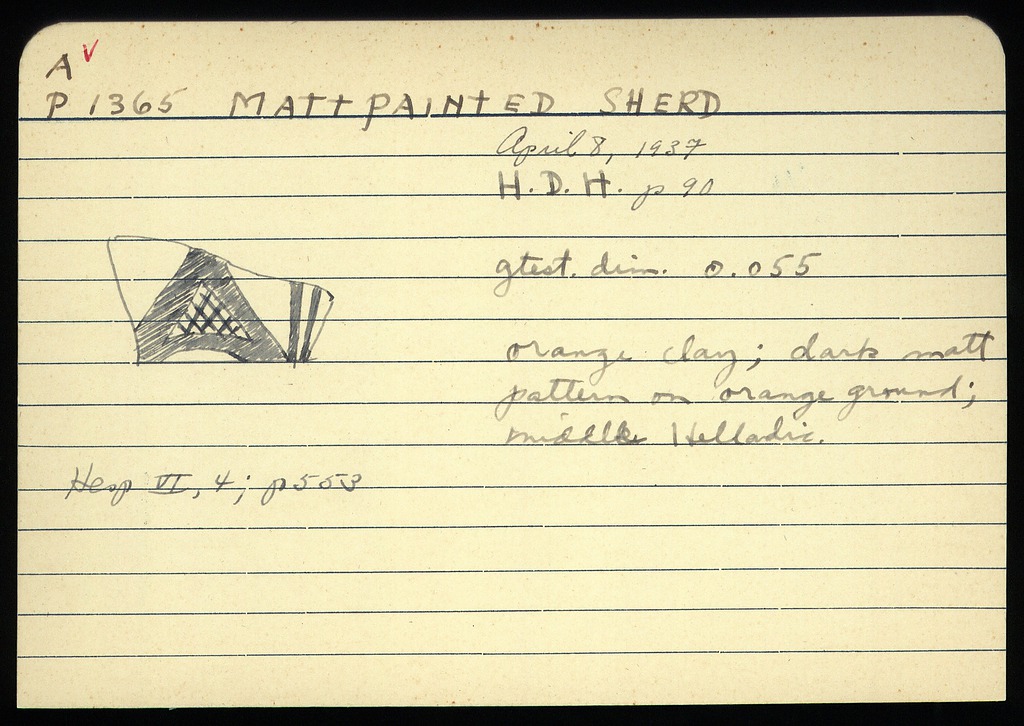 A ✓
P 1365 MATT PAINTED SHERD
April 8, 1937
H. D. H. p 90
gtest. dim. 0.055
orange clay; dark matt
pattern on orange ground;
middle Helladic.
Hesp VI, 4; p 553